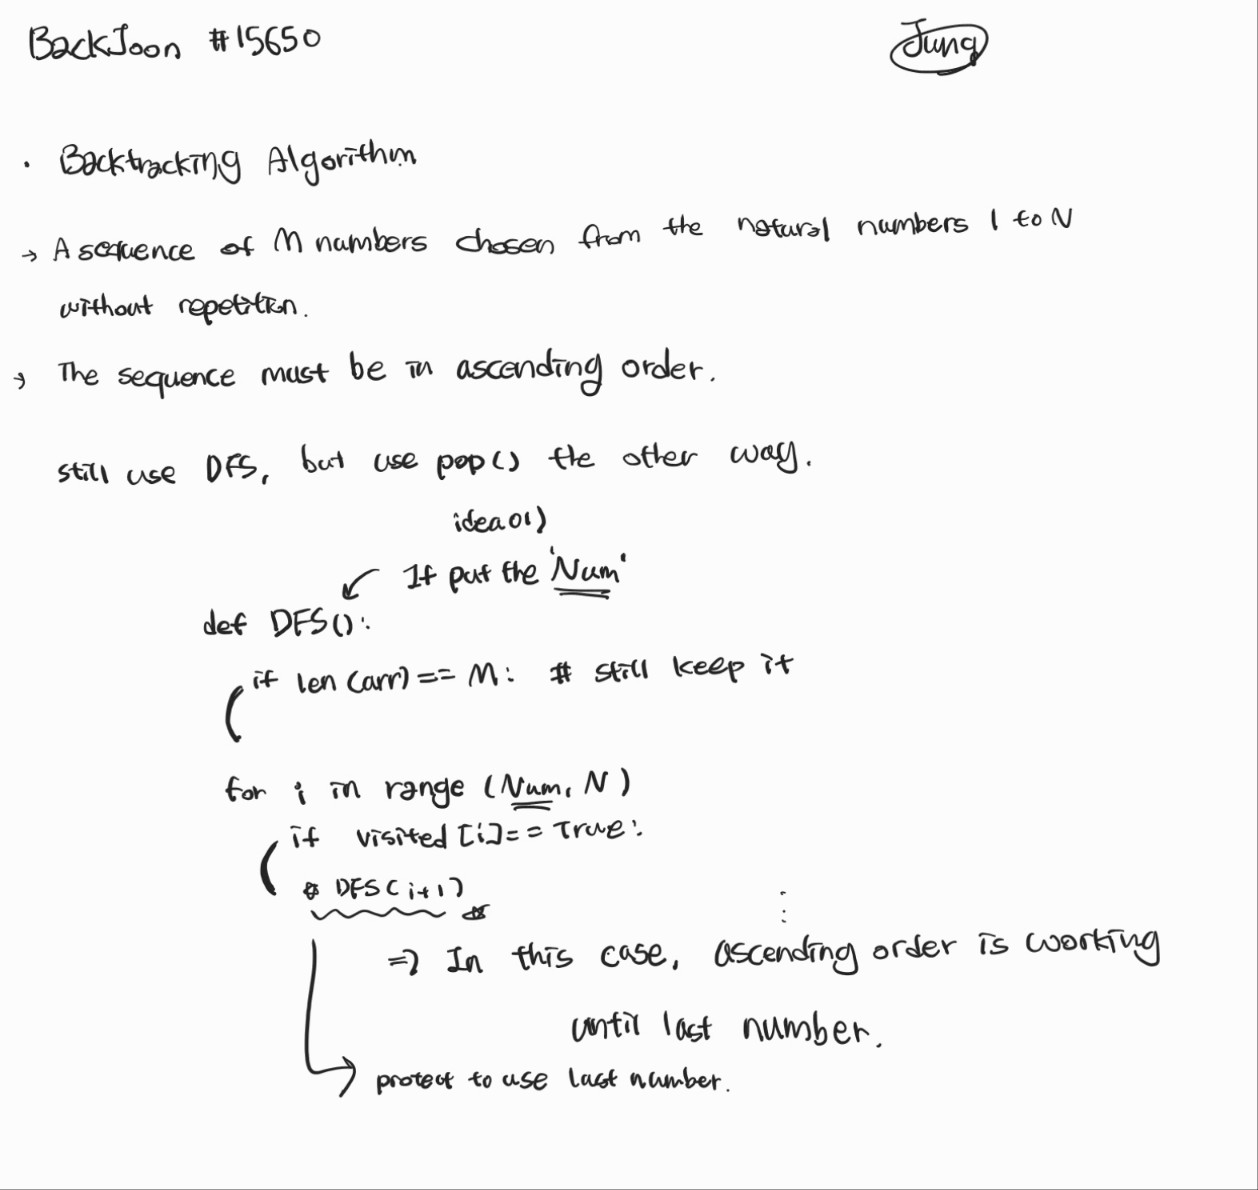 BackJoon #15650
Jung
· Backtracking Algorithm
→ A sequence of M numbers chosen from the natural numbers 1 to N
without repetition.
→ The sequence must be in ascending order.
still use DFS, but use pop() the other way.
idea01)
If put the 'Num'
def DFS():
if len(arr) == M: # still keep it
for i in range (Num, N)
if visited [i] == True:
DFS(i+1)
⇒ In this case, ascending order is working
until last number.
protect to use last number.